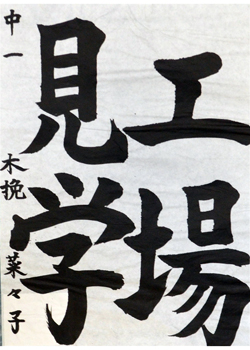 工場
見学
中一 木挽 菜々子